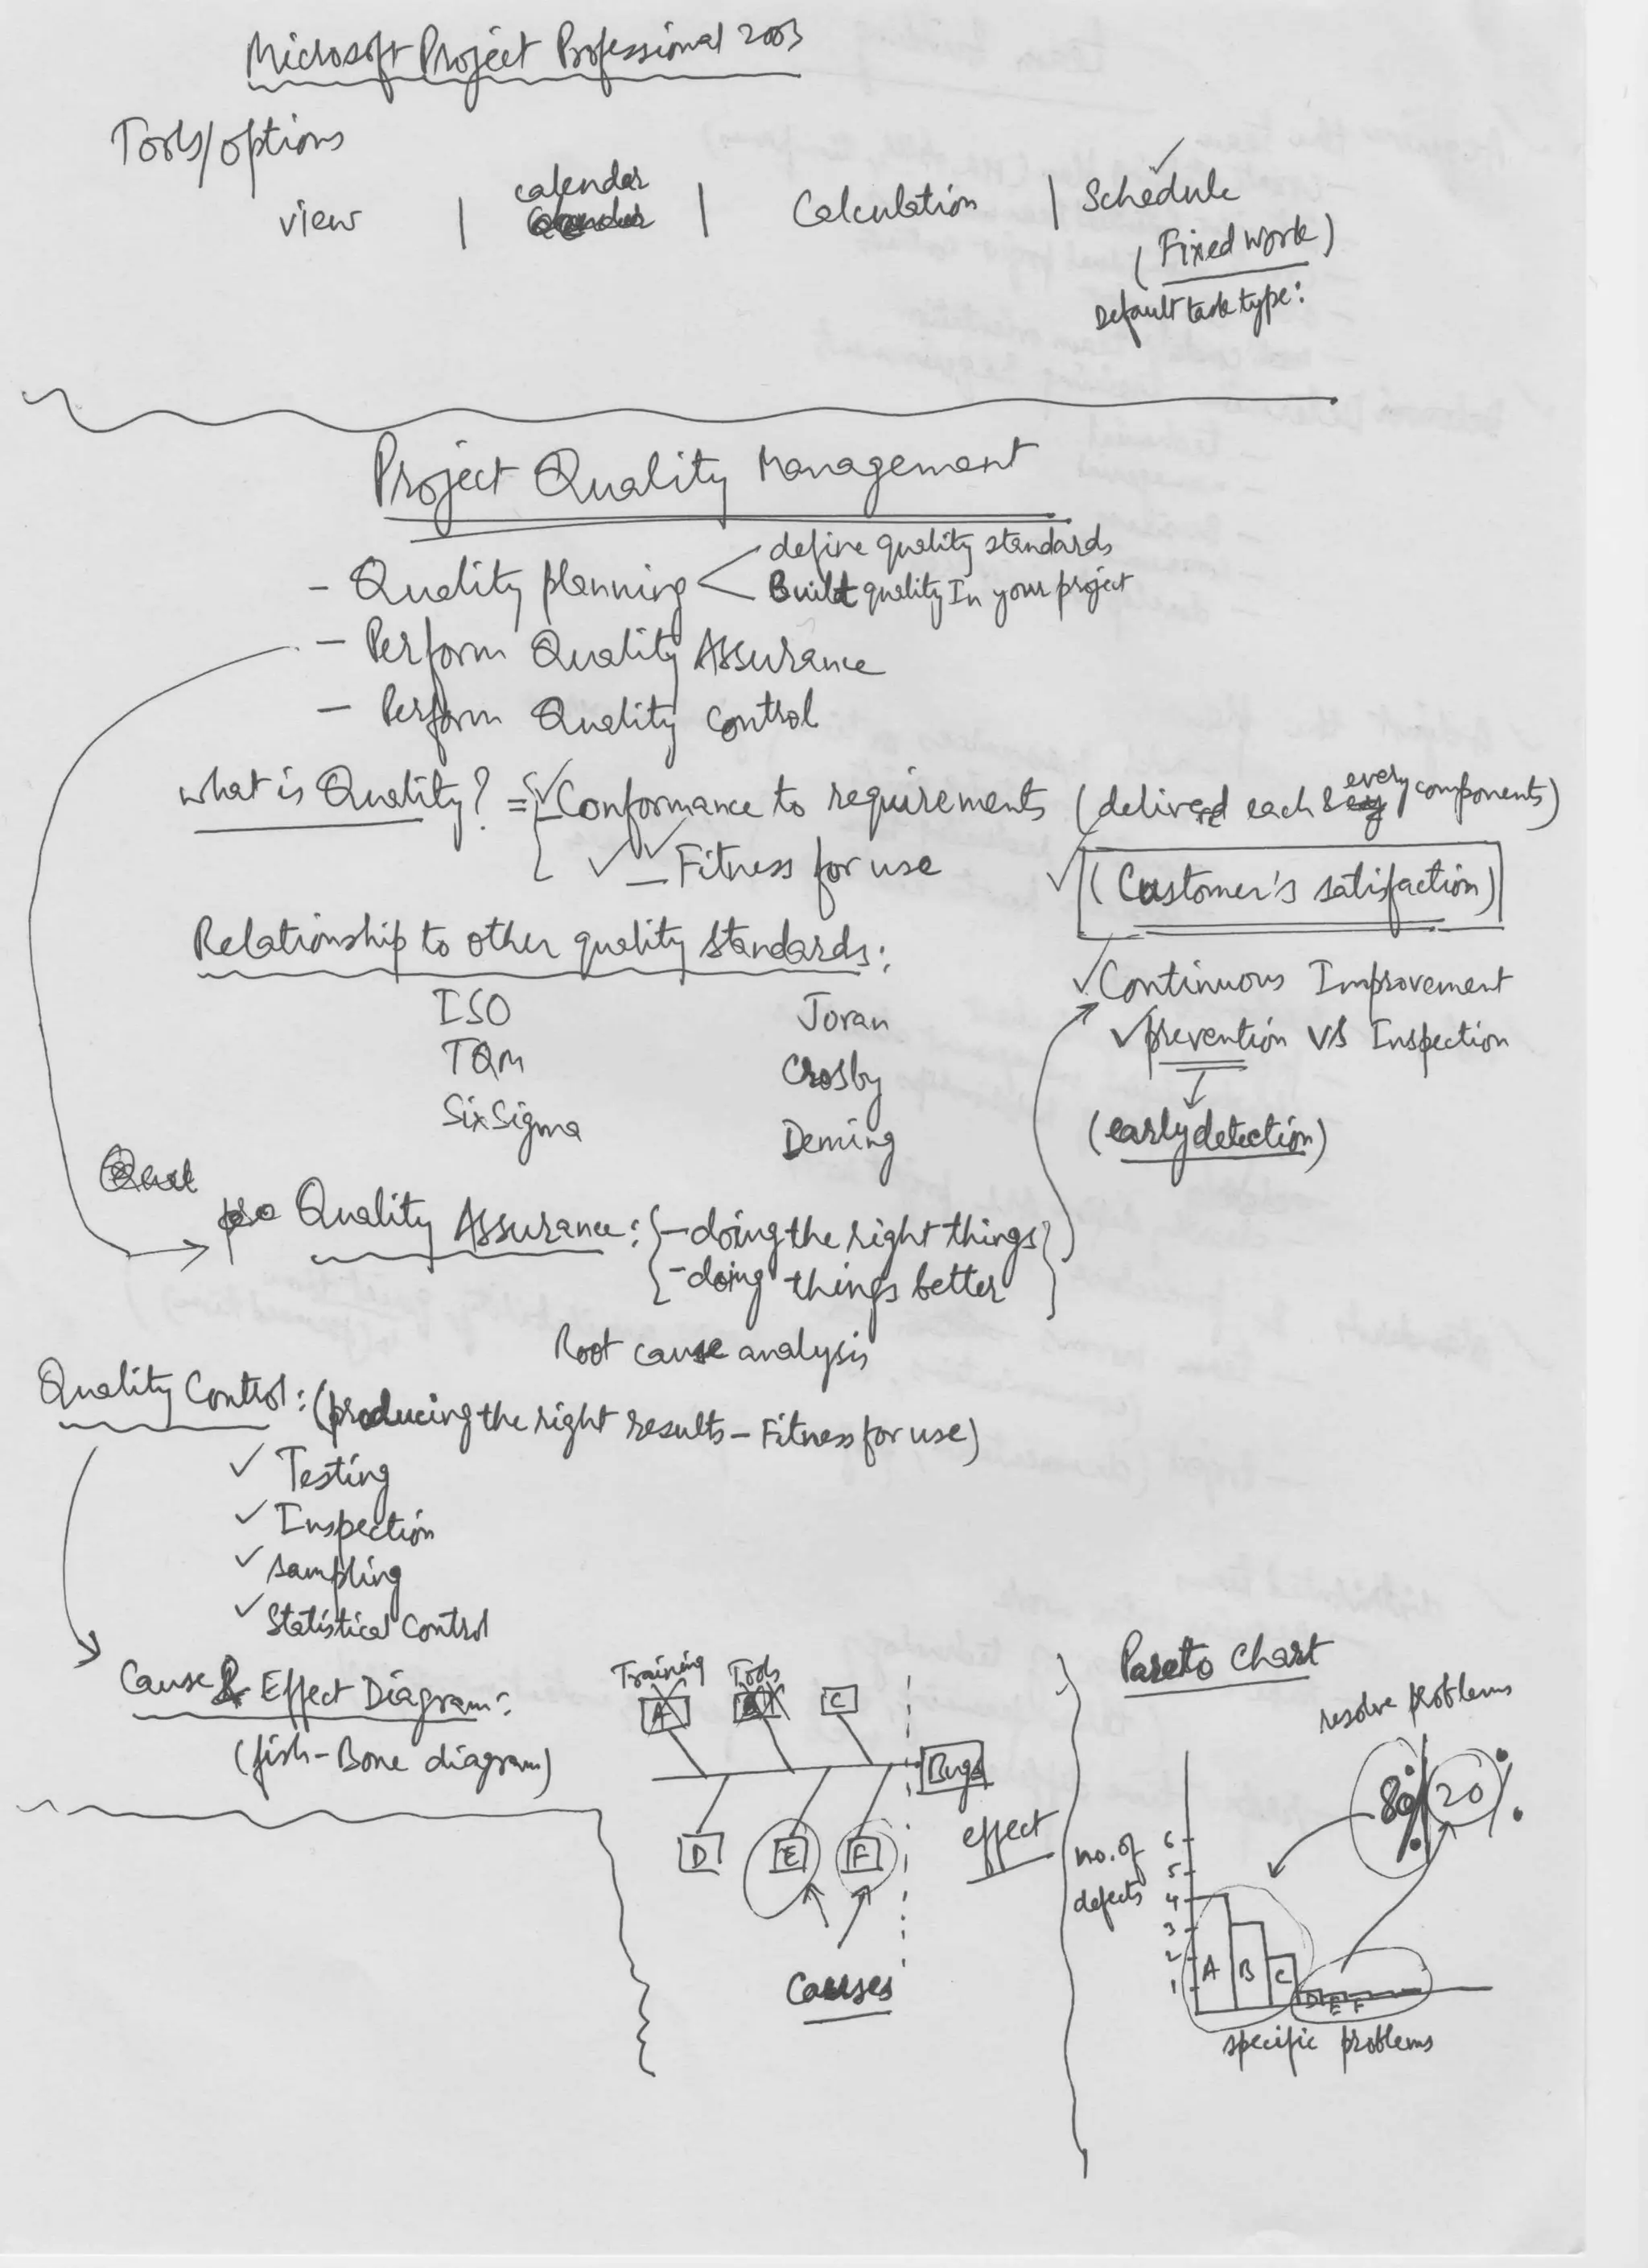 Microsoft Project Professional 2003
Tools/options
view | calendar | Calculation | Schedule
(Fixed work)
Default task type:
Project Quality Management
- Quality planning < define quality standards
Built quality In your project
- Perform Quality Assurance
- Perform Quality Control
what is Quality? = Conformance to requirements (delivered each & every components)
- Fitness for use
(Customer's satisfaction)
Relationship to other quality standards:
Continuous Improvement
prevention VS Inspection
(early detection)
ISO Joran
TQM Crosby
Six Sigma Deming
Quality Assurance: { - doing the right things
- doing things better }
Root cause analysis
Quality Control: (producing the right results - Fitness for use)
✓ Testing
✓ Inspection
✓ sampling
✓ Statistical Control
Cause & Effect Diagram:
(fish-Bone diagram)
Training Tools
A B C
Bugs
effect
D E F
Causes
Pareto Chart
resolve problems
80% 20%
no. of
defects
6
5
4
3
2
1
A B C D E F
specific problems